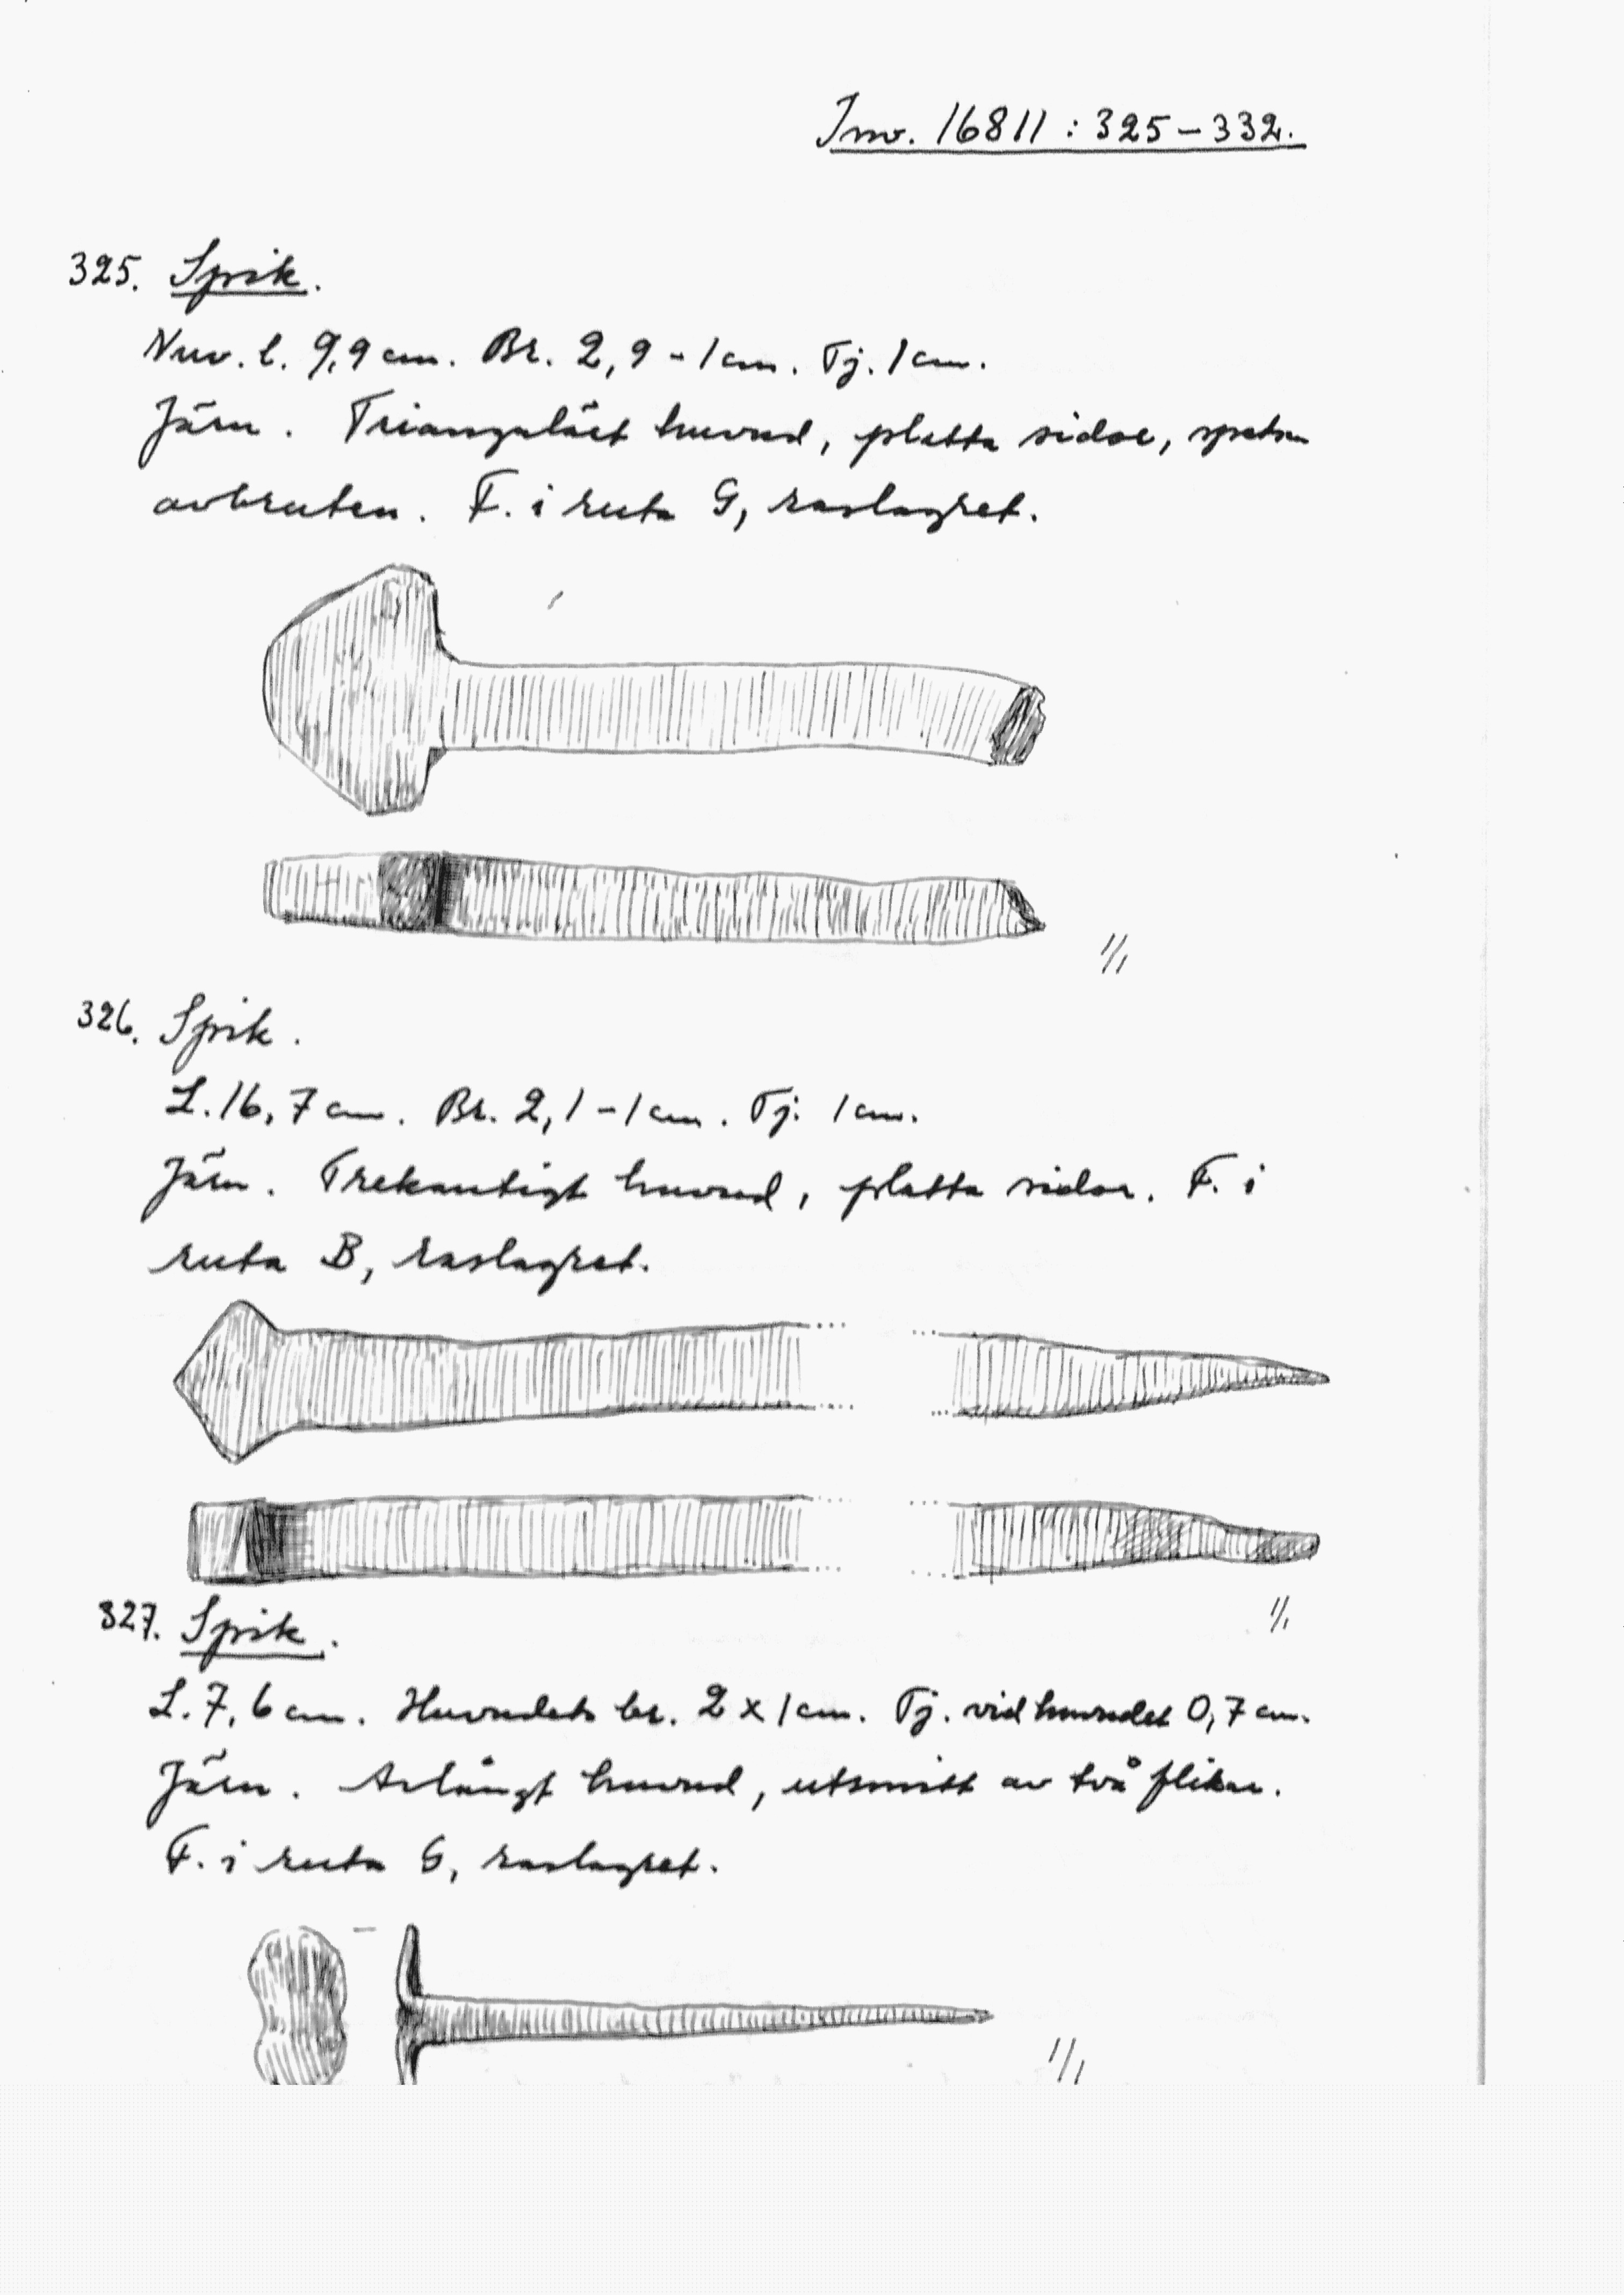 Inv. 16811 : 325 – 332.
325. Spik.
Nuv. l. 9,9 cm. Br. 2,9 - 1 cm. Tj. 1 cm.
Järn. Triangulärt huvud, platta sidor, spetsen
avbruten. F. i ruta G, raslagret.
1/1
326. Spik.
L. 16,7 cm. Br. 2,1 - 1 cm. Tj. 1 cm.
Järn. Trekantigt huvud, platta sidor. F. i
ruta B, raslagret.
1/1
327. Spik.
L. 7,6 cm. Huvudets br. 2 x 1 cm. Tj. vid huvudet 0,7 cm.
Järn. Avlångt huvud, utsmitt av två flikar.
F. i ruta G, raslagret.
1/1